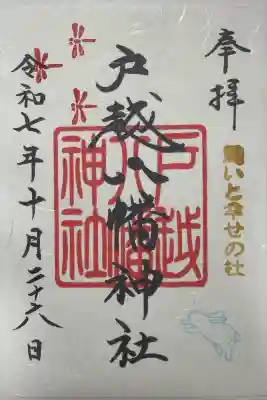 奉拝
いと幸せの社
戸越八幡神社
戸越
八幡
神社
令和七年十月二十六日